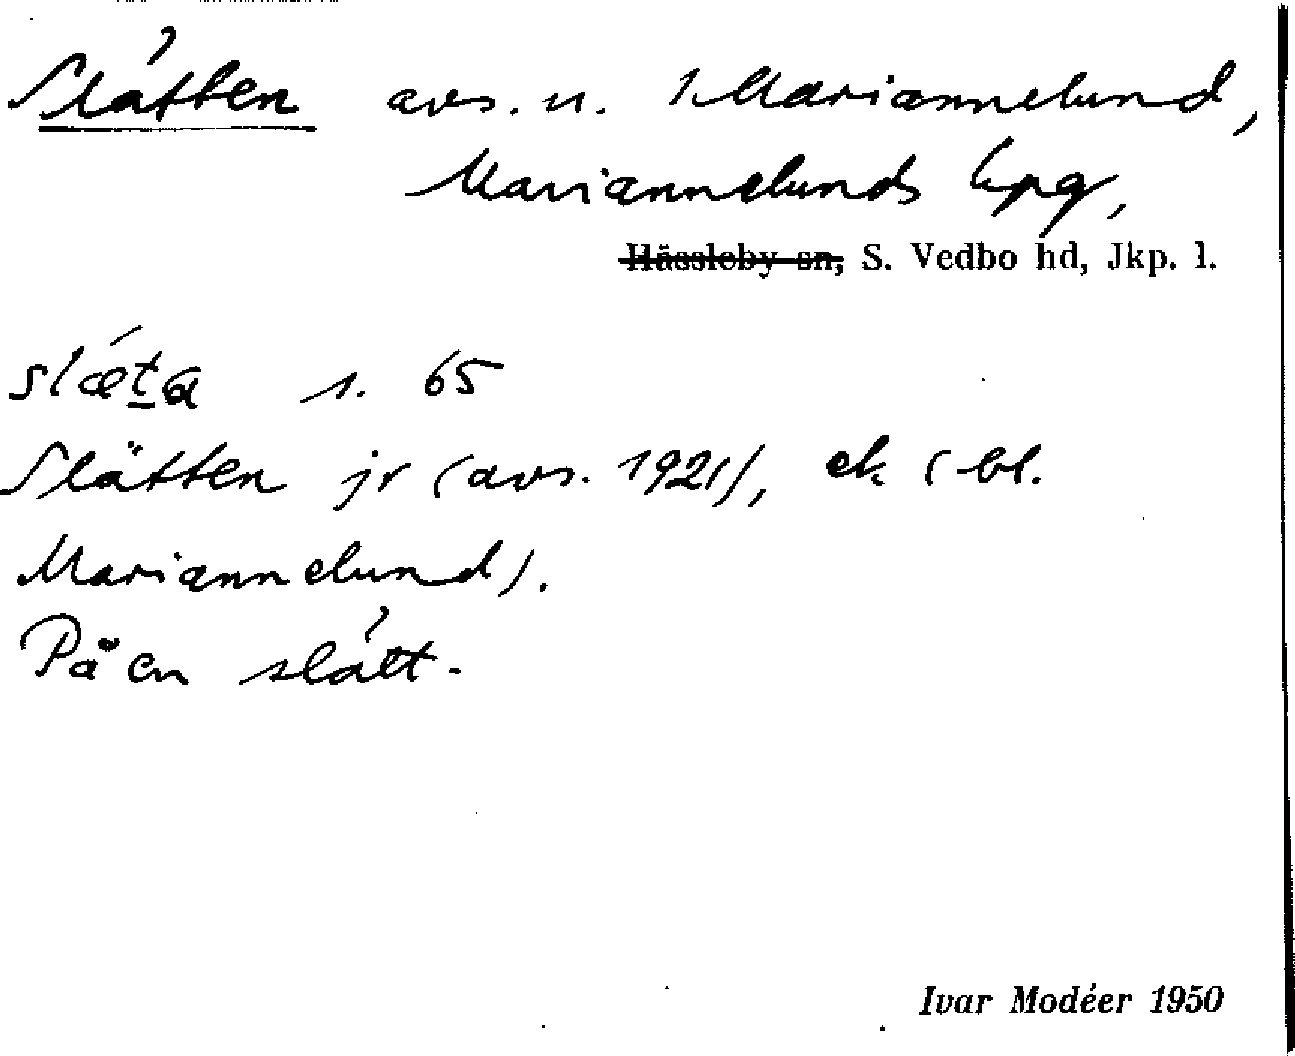 Slätten avs. u. 1 Mariannelund,
Mariannelunds kpg,
Hässleby sn, S. Vedbo hd, Jkp. l.
slæt̲a s. 65
Slätten jr (avs. 1921), ek. (bl.
Mariannelund).
På en slätt.
Ivar Modéer 1950